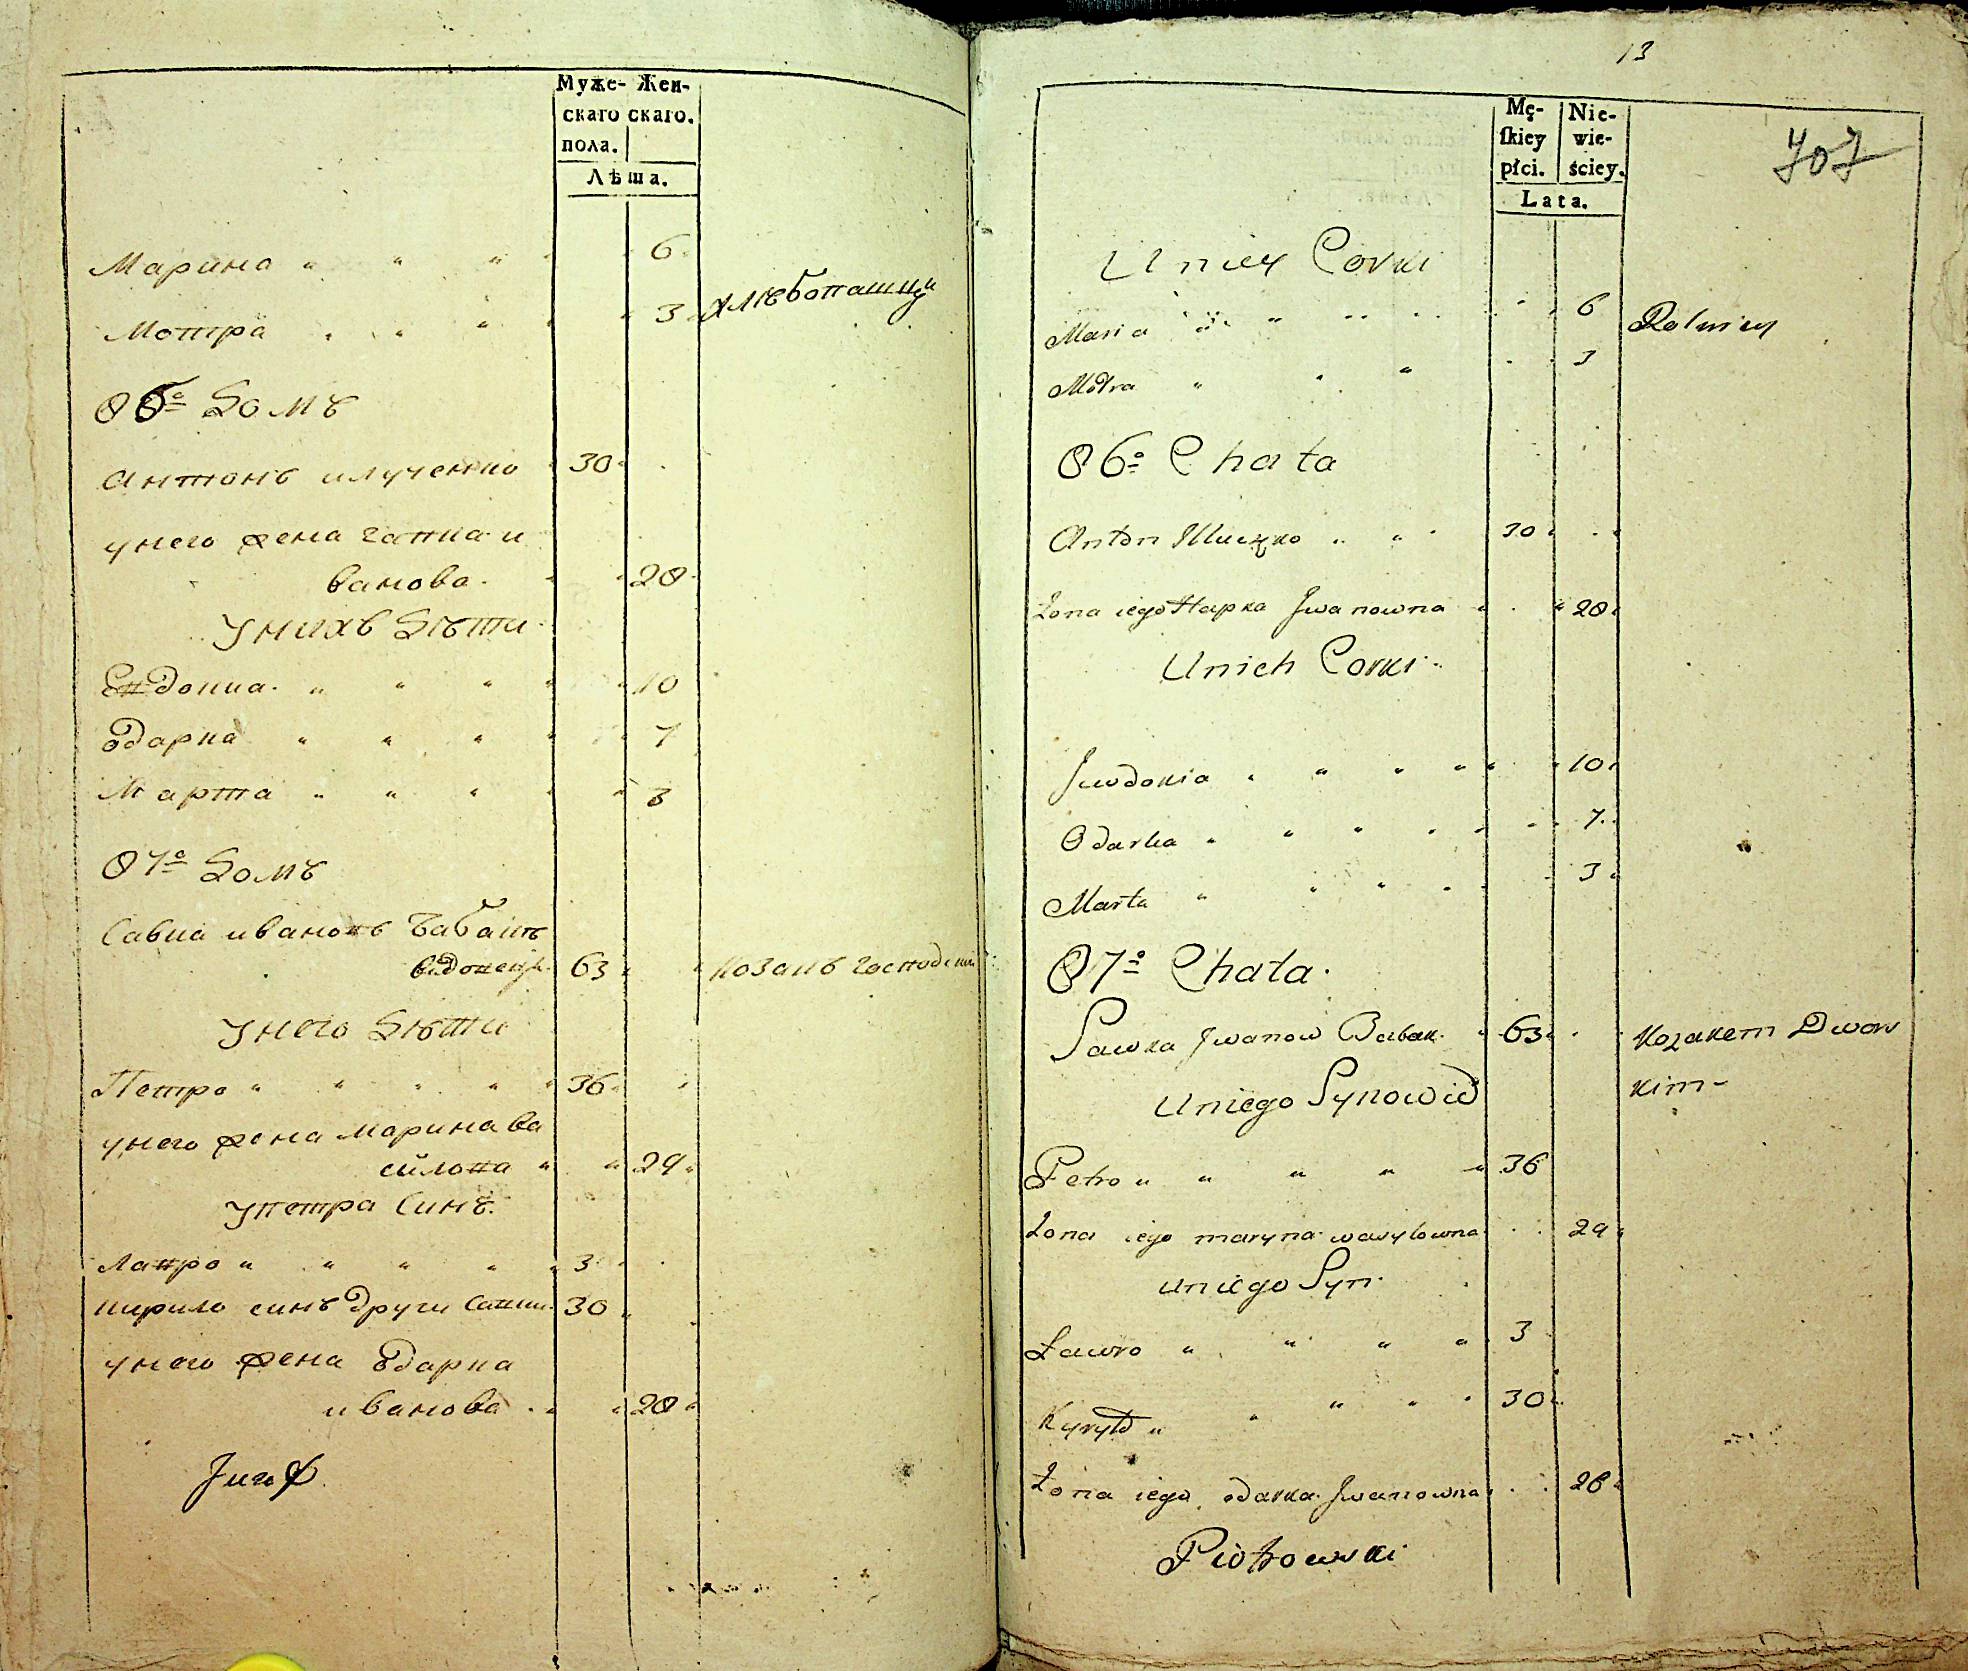 Муже- Жен-
скаго скаго.
пола.
Лѣта.
Марина 6
Мотря 3 хлѣбопашцы
86º Домъ
Антонъ илученко 30
унего жена гапка и
ванова 28
Унихъ Дѣти
Евдокиа 10
Одарка 7
Марта 3
87º Домъ
Савка ивановъ бабакъ
вдовецъ 63 козакъ господски
Унего Дѣти
Петро 36
унего жена марина ва
силова 29
Упетра Синъ
Лавро 3
кирило синъ други савки 30
унего жена Одарка
иванова 28
13
707
Mę- Nie-
ſkiey wie-
płci. ściey.
Lata.
U niey Corki
Maria 6 Rolnicy
Motra 3
86º Chata
Anton Iluczko 30
Zona iego Hapka Jwanowna 28
Unich Corki
Jewdokia 10
Odarka 7
Marta 3
87º Chata
Sawka Jwanow Babak 63 Kozakem Dwors
kim
Uniego Synowie
Petro 36
Zona iego maryna wasylowna 29
uniego Syn
Ławro 3
Kyryło 30
Zona iego odarka Jwanowna 28
Piotrowski